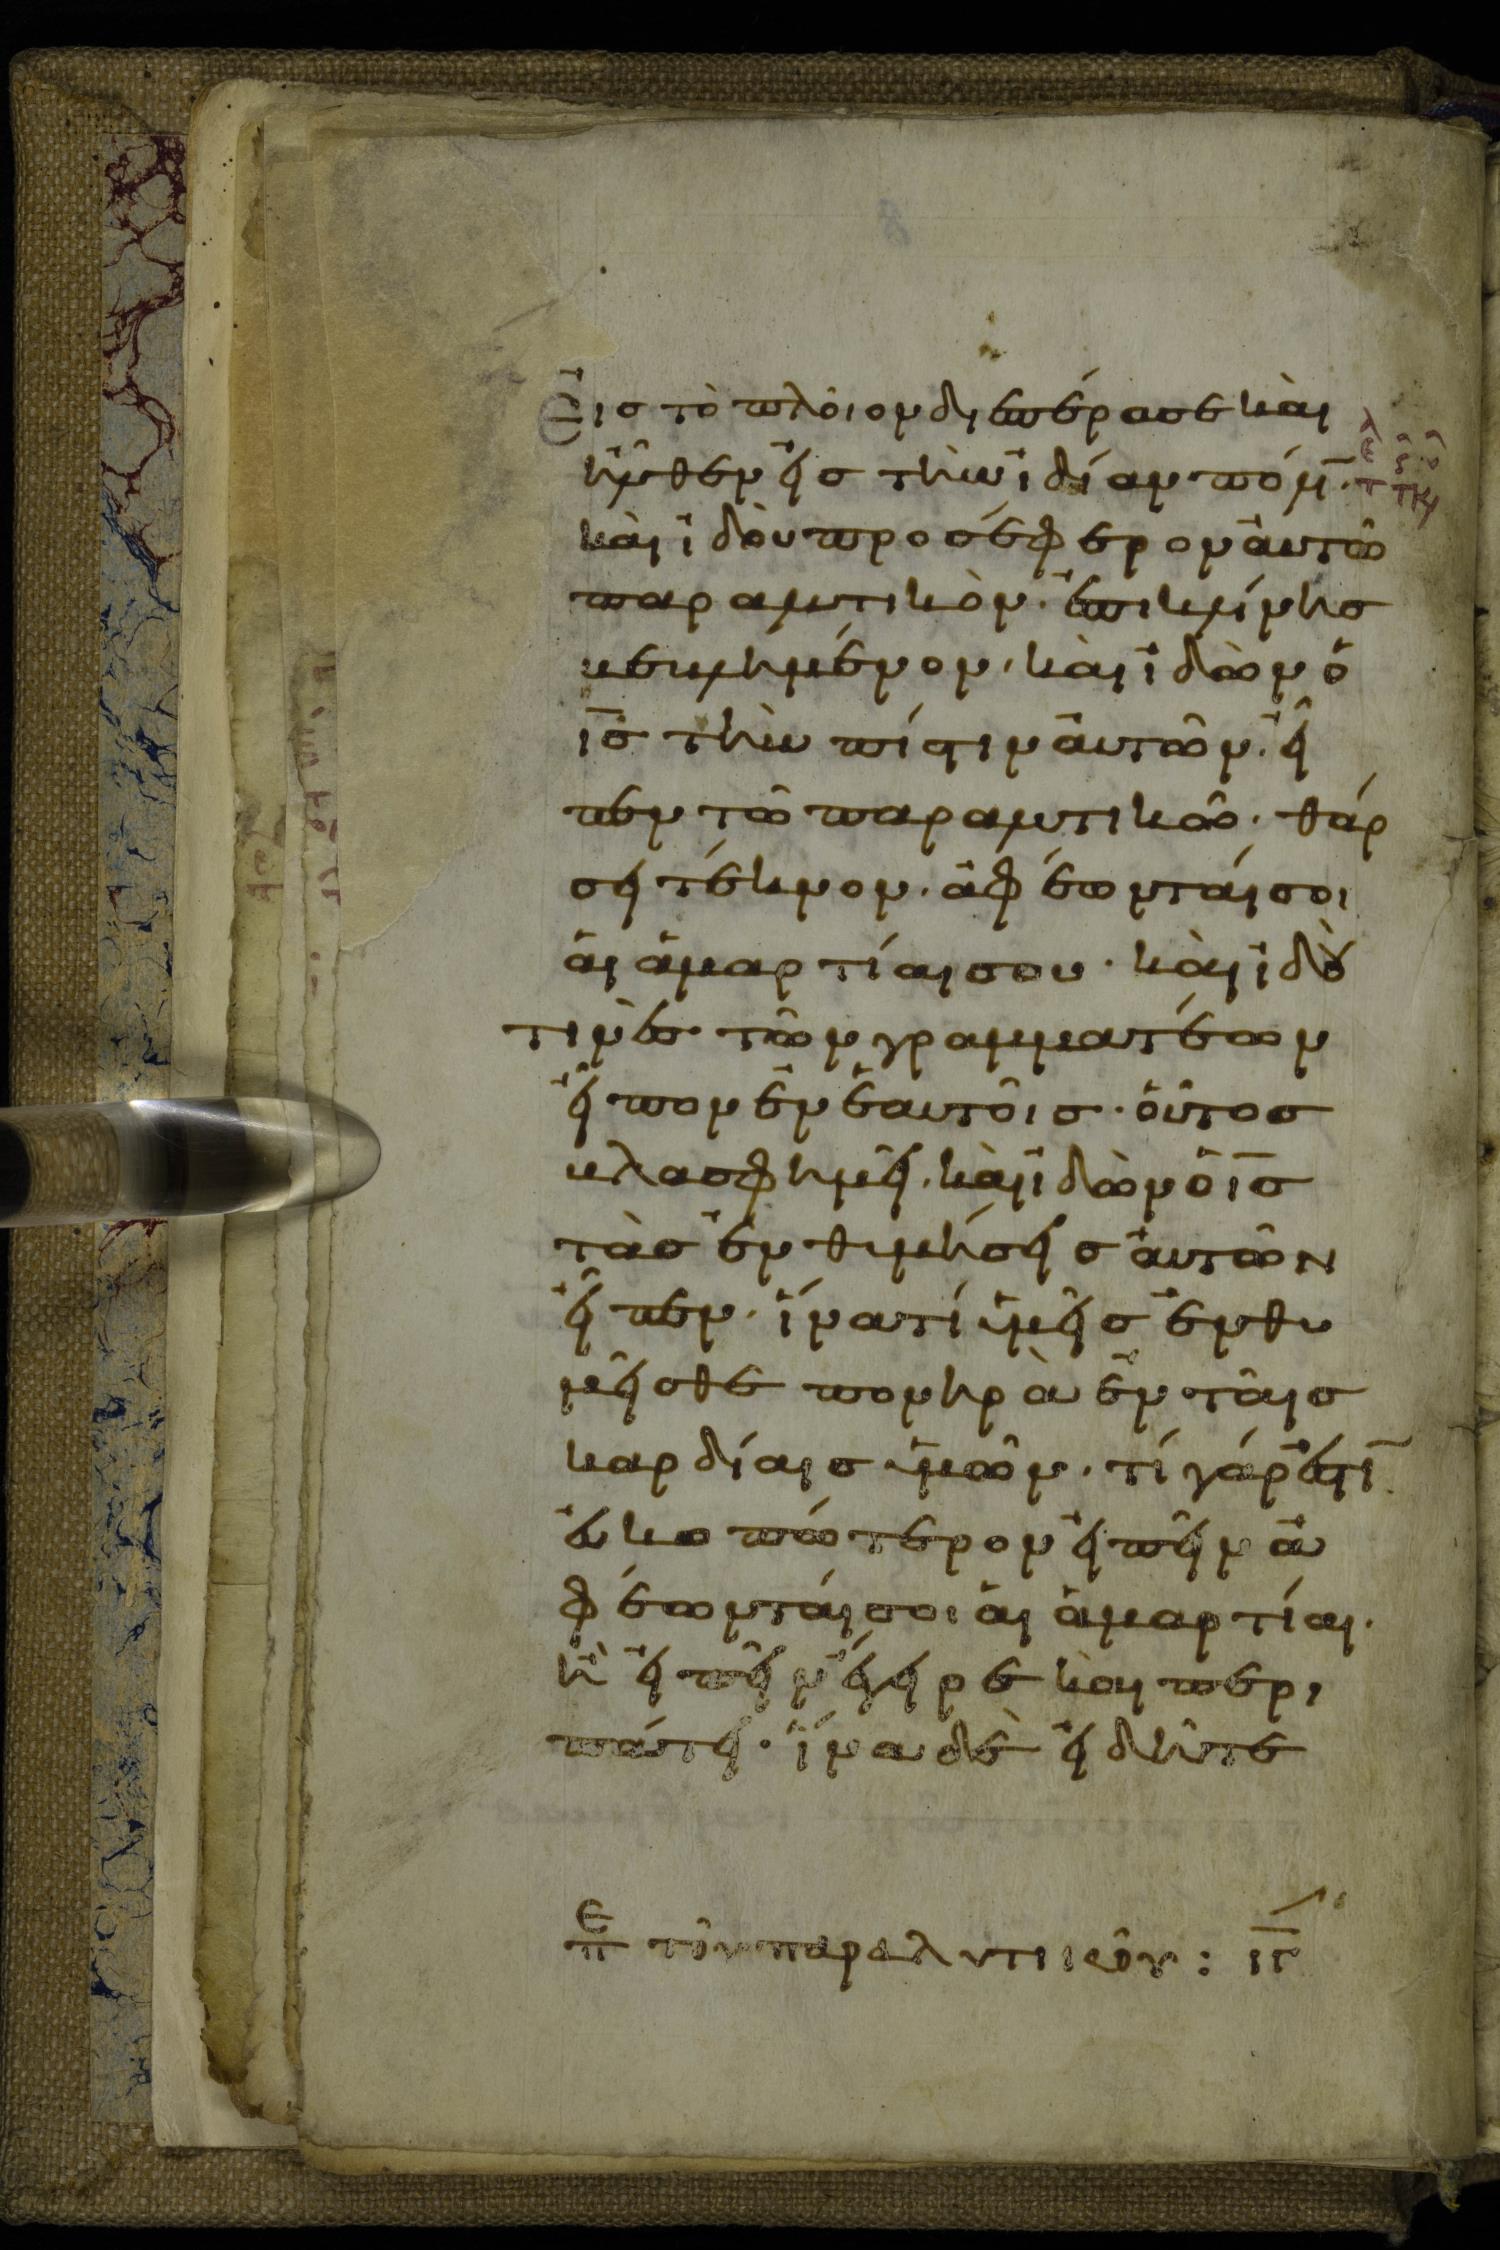 Εἰς τὸ πλοῖον διεπέρασε καὶ
ἦλθεν εἰς τὴν ἰδίαν πόλιν̅.
καὶ ἰδοὺ προσέφερον αὐτῶ
παραλυτικὸν. ἐπὶ κλίνης
βεβλημένον. καὶ ἰδὼν ὁ
ι̅ς̅ τὴν πίστιν αὐτῶν. εἶ
πεν τῶ παραλυτικῶ. θάρ
σει τέκνον. ἀφέωνταί σοι
αἱ ἁμαρτίαι σου. καὶ ἰδοὺ
τινὲς τῶν γραμματέων
εἶπον ἐν ἑαυτοῖς. οὗτος
βλασφημεῖ. καὶ ἰδὼν ὁ ι̅ς̅
τὰς ἐνθυμήσεις αὐτῶν
εἶπεν. ἵνα τί ὑμεῖς ἐνθυ
μεῖσθε πονηρὰ ἐν ταῖς
καρδίαις ὑμῶν. τί γάρ ἐστι̅
εὐκοπώτερον εἰπεῖν ἀ
φέωνταί σοι αἱ ἁμαρτίαι.
ἢ εἰπεῖν ἔγειρε καὶ περι
πάτει. ἵνα δὲ εἰδῆτε
πε τὸν παραλυτικόν : ι̅γ̅